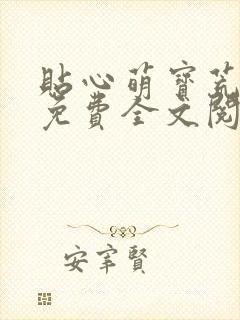 貼心萌寶荒
免費全文閱
安寧賢